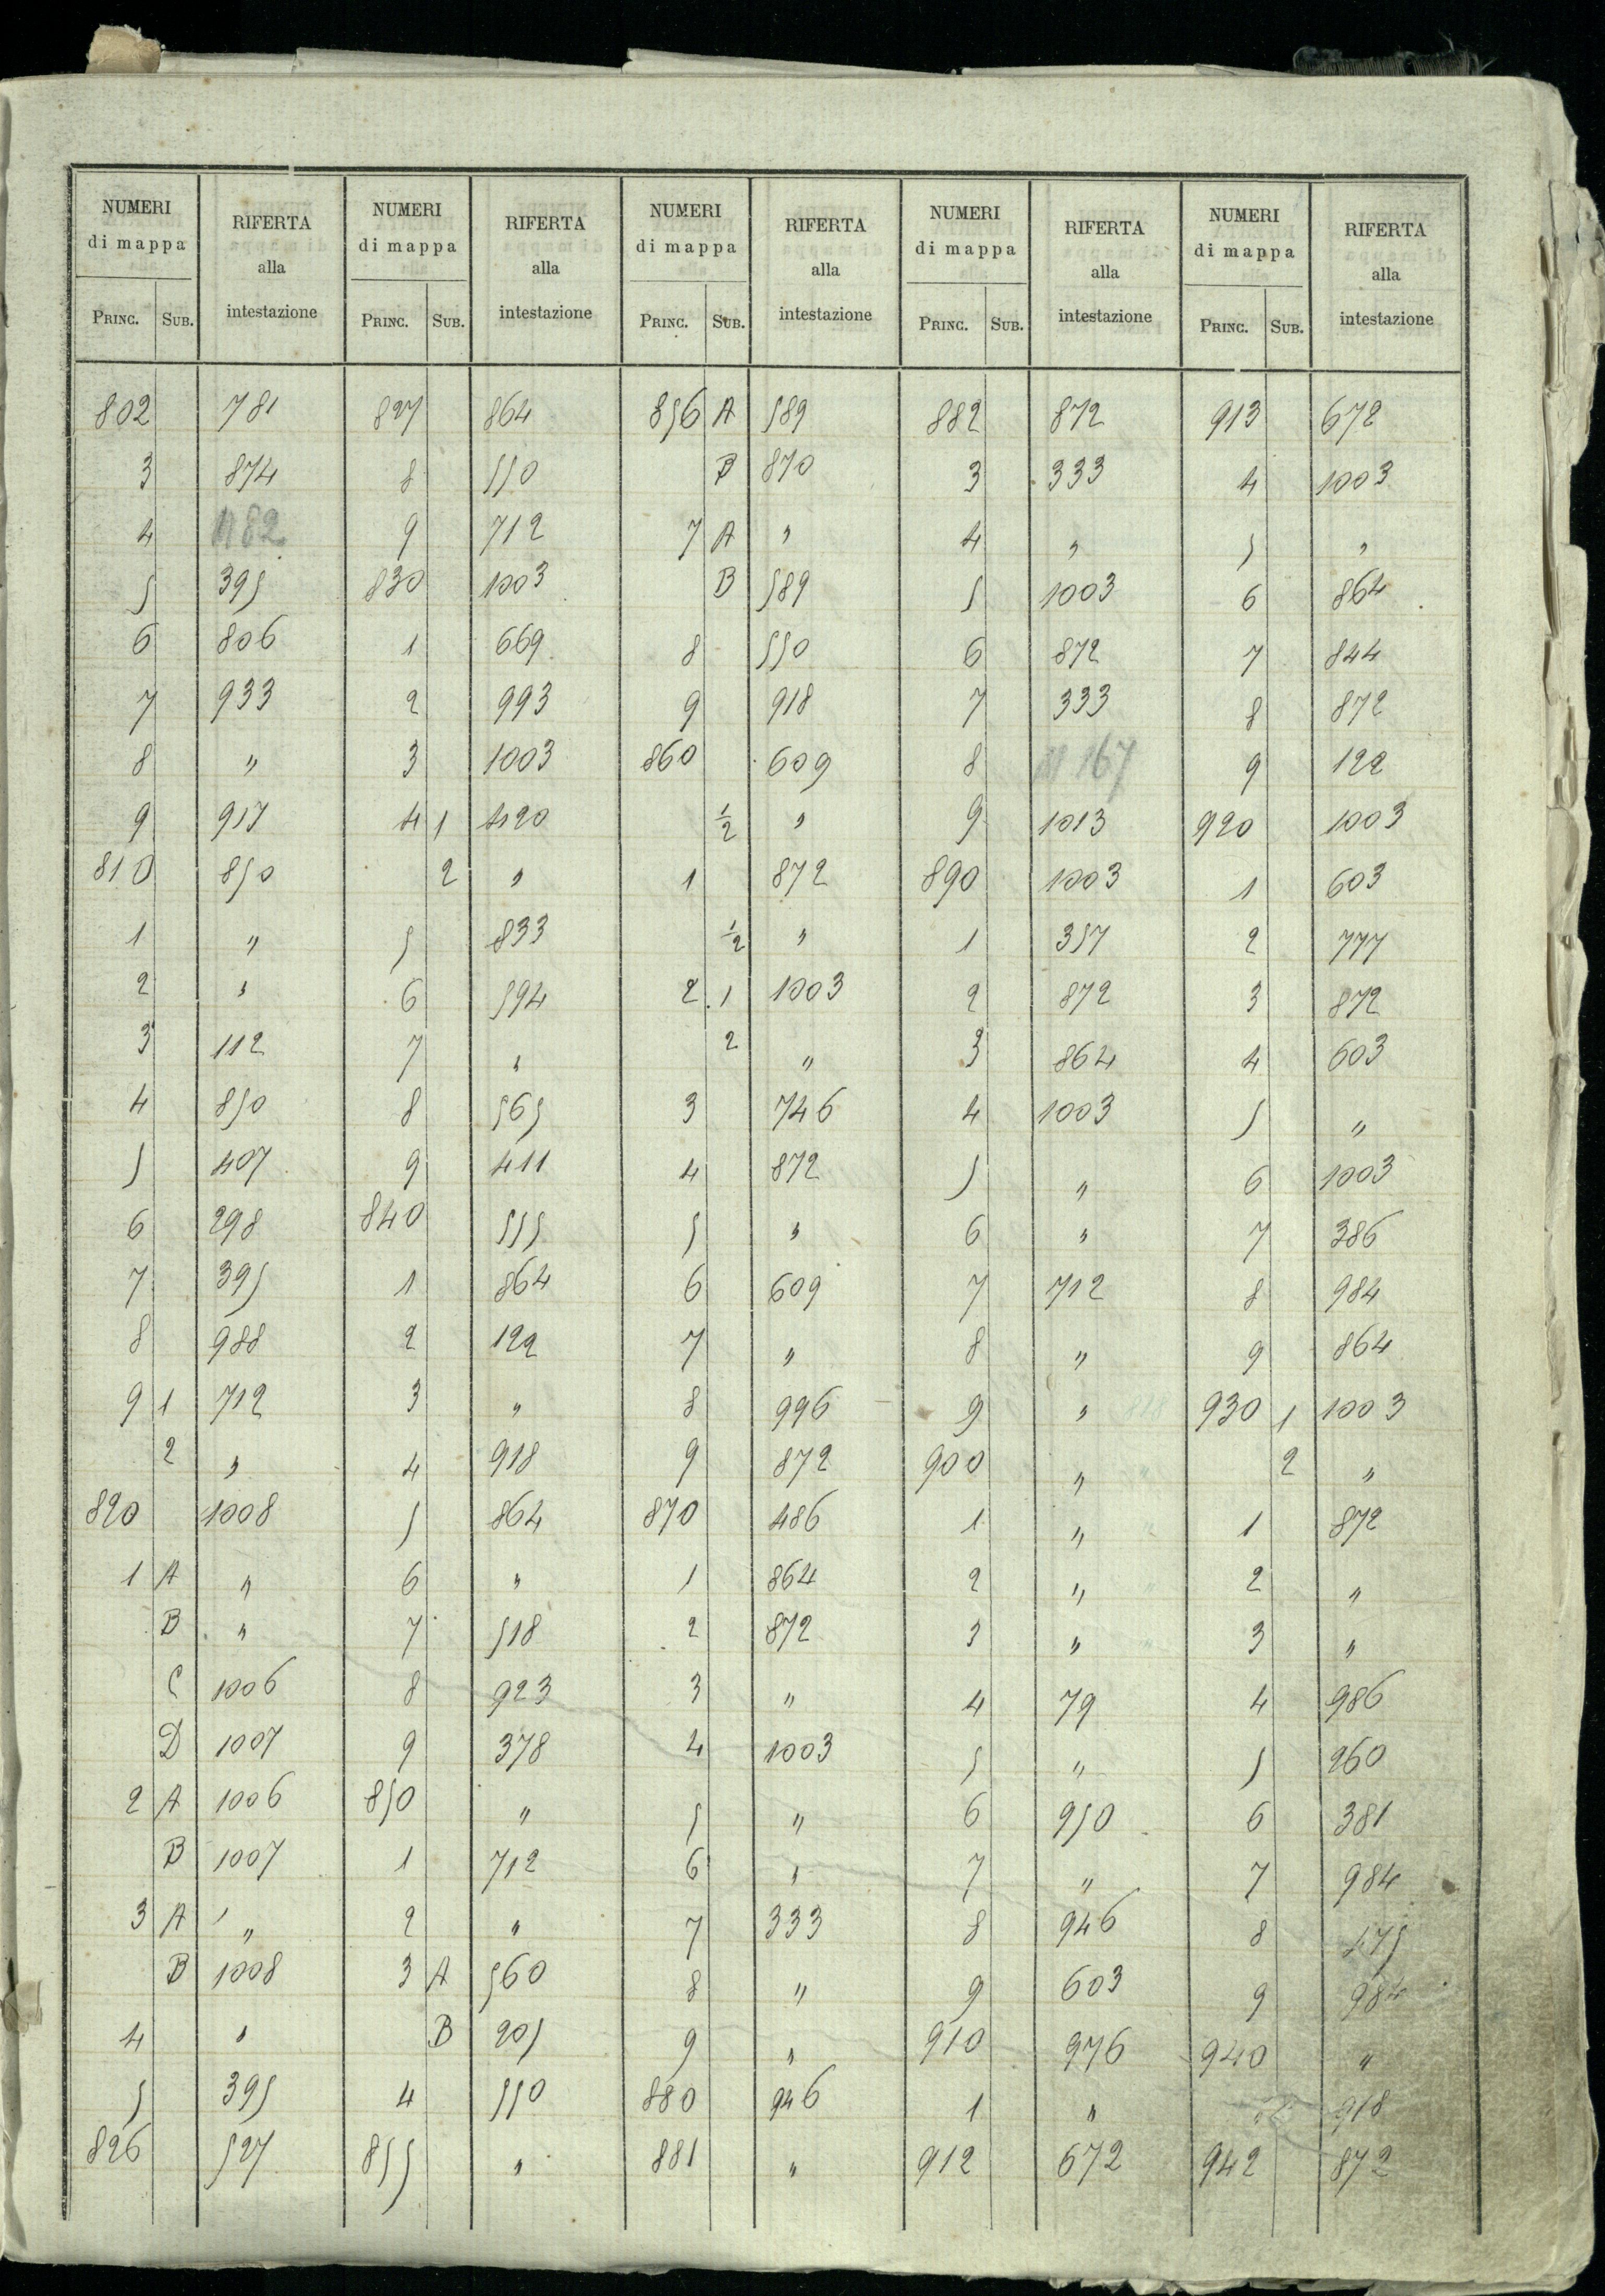 NUMERI di mappa RIFERTA alla intestazione NUMERI di mappa RIFERTA alla intestazione NUMERI di mappa RIFERTA alla intestazione NUMERI di mappa RIFERTA alla intestazione NUMERI di mappa RIFERTA alla intestazione
PRINC. SUB. PRINC. SUB. PRINC. SUB. PRINC. SUB. PRINC. SUB.
802 781 827 864 856 A 589 882 872 913 672
3 874 8 550 B 870 3 333 4 1003
4 1182 9 712 7 A " 4 " 5 "
5 395 830 1003 B 589 5 1003 6 864
6 806 1 669 8 550 6 872 7 844
7 933 2 993 9 918 7 333 8 872
8 " 3 1003 860 609 8 167 9 122
9 917 4 1 420 1/2 " 9 1013 920 1003
810 850 2 " 1 872 890 1003 1 603
1 " 5 833 1/2 " 1 357 2 777
2 " 6 594 2 1 1003 2 872 3 872
3 112 7 " 2 " 3 864 4 603
4 850 8 565 3 746 4 1003 5 "
5 407 9 411 4 872 5 " 6 1003
6 298 840 555 5 " 6 " 7 386
7 395 1 864 6 609 7 712 8 984
8 988 2 122 7 " 8 " 9 864
9 1 712 3 " 8 996 9 " 930 1 1003
2 " 4 918 9 872 900 " 2 "
820 1008 5 864 870 486 1 " 1 872
1 A " 6 " 1 864 2 " 2 "
B " 7 518 2 872 3 " 3 "
C 1006 8 923 3 " 4 79 4 986
D 1007 9 378 4 1003 5 " 5 260
2 A 1006 850 " 5 " 6 950 6 381
B 1007 1 712 6 " 7 " 7 984
3 A " 2 " 7 333 8 946 8
B 1008 3 A 560 8 " 9 603 9 984
4 " B 205 9 " 910 976 940 "
5 395 4 550 880 946 1 " 918
826 527 855 " 881 " 912 672 942 872